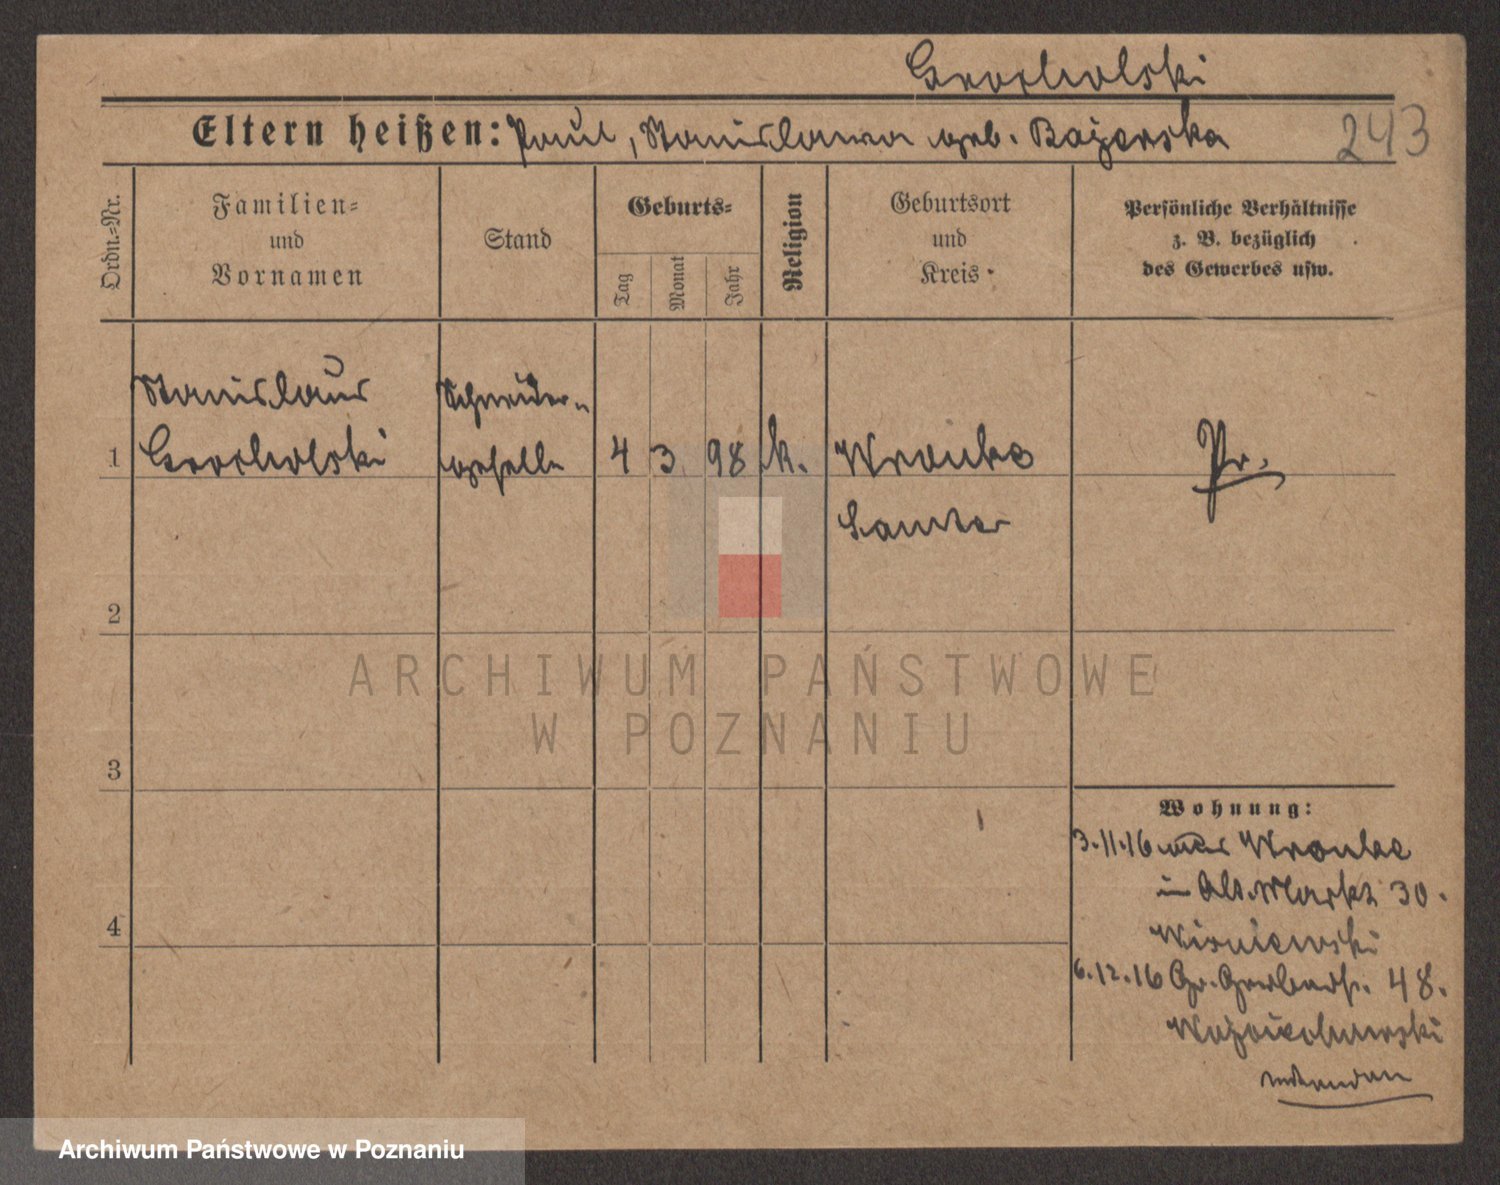 Grocholski
Eltern heißen: Paul, Stanislawa geb. Bajerska
243
Ordn.-Nr.
Familien-
und
Vornamen
Stand
Geburts-
Tag
Monat
Jahr
Religion
Geburtsort
und
Kreis
Persönliche Verhältnisse
z. B. bezüglich
des Gewerbes usw.
Stanislaus
Grocholski
Schneider-
geselle
1
4
3
98
k.
Wronke
Samter
Pr.
2
3
4
Wohnung:
3.11.16 aus Wronke
in Alt. Markt 30.
Wisniewski
6.12.16 Gr. Gerberstr. 48.
Wojciechowski
ARCHIWUM PAŃSTWOWE
W POZNANIU
Archiwum Państwowe w Poznaniu